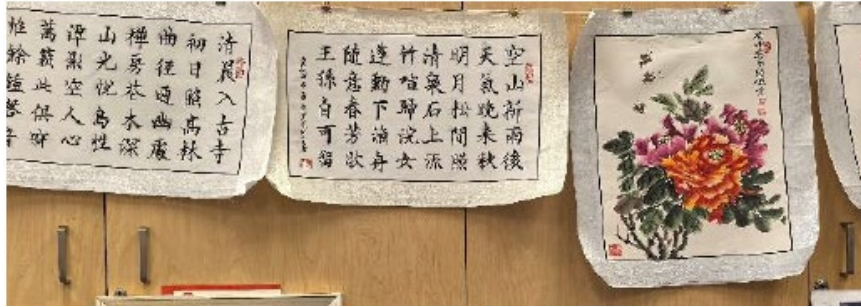 清晨入古寺
初日照高林
曲徑通幽處
禪房花木深
山光悅鳥性
潭影空人心
萬籟此俱寂
惟餘鐘磬音
空山新雨後
天氣晚來秋
明月松間照
清泉石上流
竹喧歸浣女
蓮動下漁舟
隨意春芳歇
王孫自可留